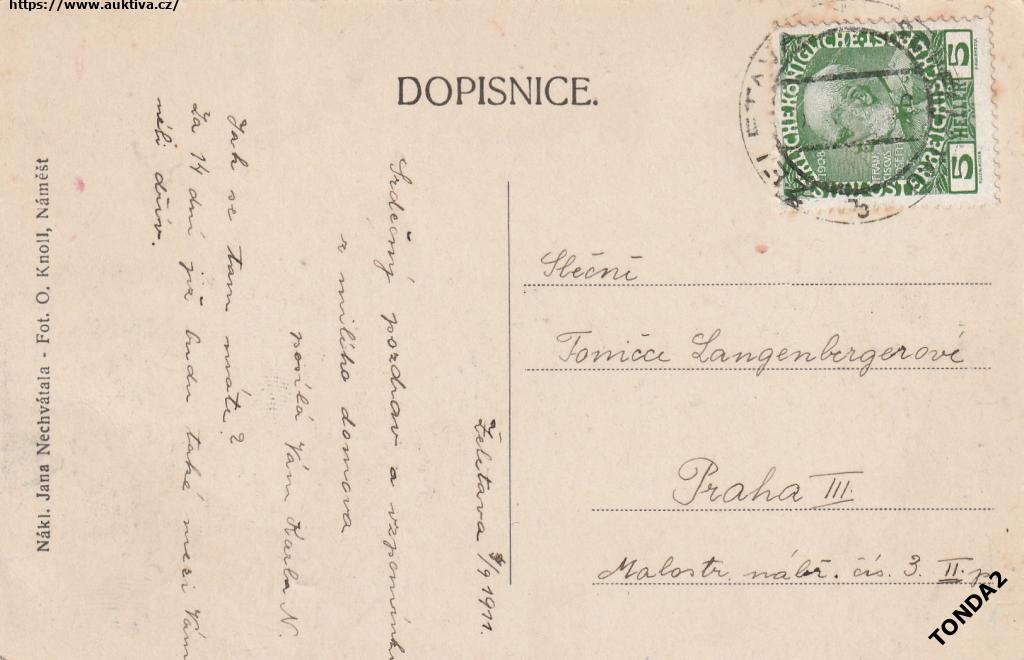 https://www.auktiva.cz/
DOPISNICE.
5
HELLER
5
1908
Slečně
Toničce Langenbergerové
Praha III.
Malostr. nábř. čís. 3 II. p.
Želetava /9 1911.
Srdečný pozdrav a vzpomínku
z milého domova
posílá Vám Karla N.
Jak se tam máte?
Za 14 dní již budu také mezi Vámi
dřív.
Nákl. Jana Nechvátala - Fot. O. Knoll, Náměšť
TONDA2